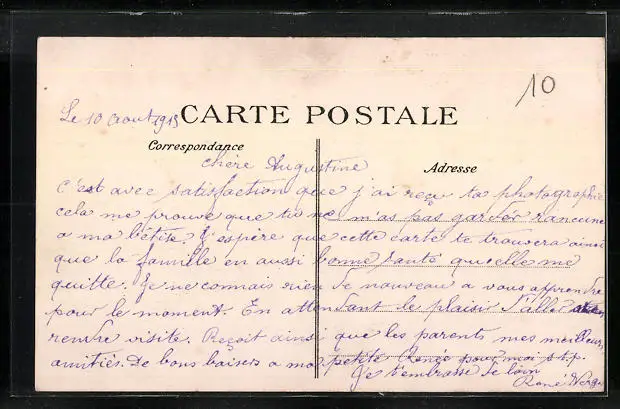 10
Le 10 Aout 1913
CARTE POSTALE
Correspondance
Adresse
chère Augustine
c'est avec satisfaction que j'ai reçu ta photographie
cela me prouve que tu ne m'as pas garder rancune
a ma bêtise. J'espère que cette carte te trouvera ainsi
que la famille en aussi bonne santé qu'elle me
quitte. Je ne connais rien de nouveau a vous apprendre
pour le moment. En attendant le plaisir d'aller
rendre visite. Reçoit ainsi que les parents mes meilleurs
amitiés. De bons baisers a ma petite Renée pour moi s.t.p.
Je t'embrasse de loin
René